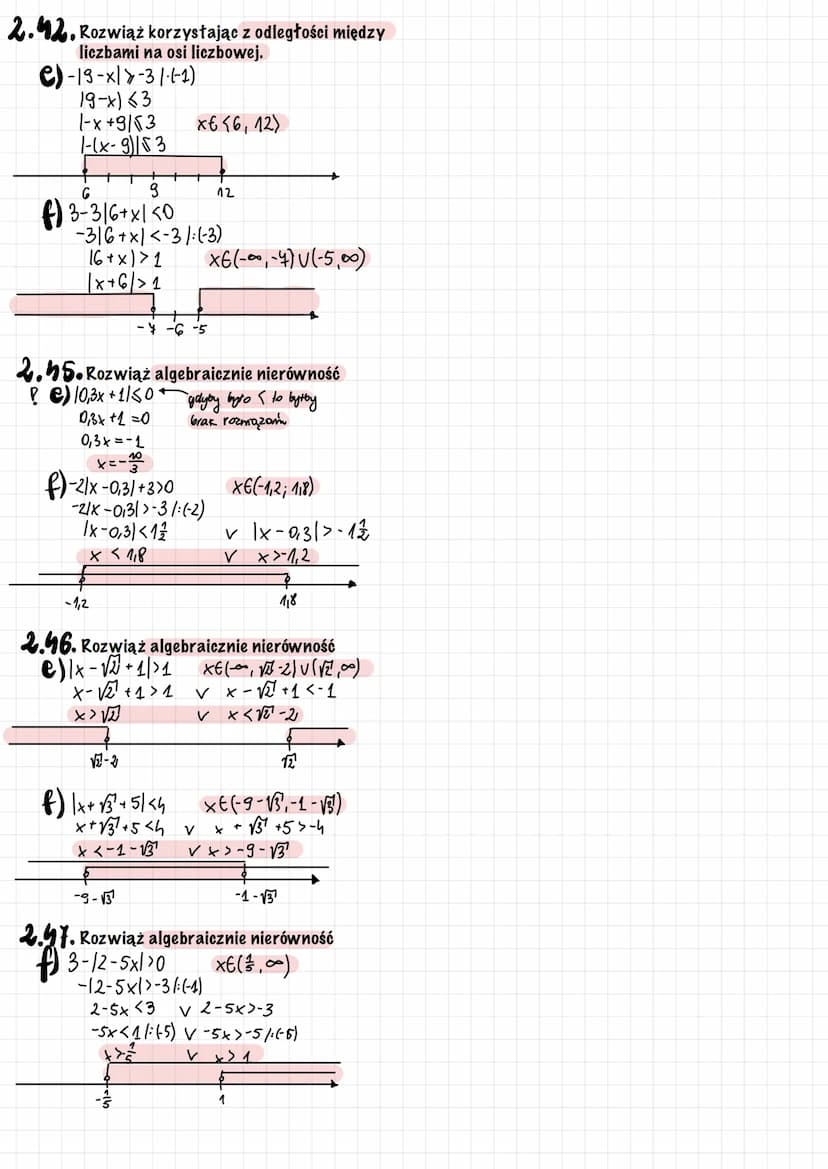 2.42. Rozwiąż korzystając z odległości między
liczbami na osi liczbowej.
e) -|9-x|⩾-3 |·(-1)
|9-x|⩽3
|-x+9|⩽3 x∈<6, 12>
|-(x-9)|⩽3
6 9 12
f) 3-3|6+x|<0
-3|6+x|<-3 |:(-3)
|6+x|>1 x∈(-∞,-7)∪(-5,∞)
|x+6|>1
-7 -6 -5
2.45. Rozwiąż algebraicznie nierówność
? e) |0,3x+1|⩽0 ← gdyby było < to byłby
0,3x+1=0 brak rozwiązań
0,3x=-1
x=-10/3
f) -2|x-0,3|+3>0 x∈(-1,2; 1,8)
-2|x-0,3|>-3 |:(-2)
|x-0,3|<1 1/2 ∨ |x-0,3|>-1 1/2
x<1,8 ∨ x>-1,2
-1,2 1,8
2.46. Rozwiąż algebraicznie nierówność
e) |x-√2+1|>1 x∈(-∞, √2-2)∪(√2,∞)
x-√2+1>1 ∨ x-√2+1<-1
x>√2 ∨ x<√2-2
√2-2 √2
f) |x+√3+5|<4 x∈(-9-√3,-1-√3)
x+√3+5<4 ∨ x+√3+5>-4
x<-1-√3 ∨ x>-9-√3
-9-√3 -1-√3
2.47. Rozwiąż algebraicznie nierówność
f) 3-|2-5x|>0 x∈(1/5,∞)
-|2-5x|>-3 |:(-1)
2-5x<3 ∨ 2-5x>-3
-5x<1 |:(-5) ∨ -5x>-5 |:(-5)
x>-1/5 ∨ x>1
-1/5 1